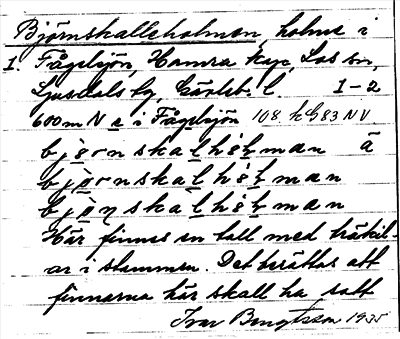 Björnskalleholmen, holme i
1. Fågelsjön, Hamra kpg, Los sn,
Ljusdals tg, Gävleb. l. 1-2
600 m N e i Fågelsjön 108 h G83 NV
bjornskalhólman ä
bjornskalhólman
bjonskalhólman
Här finnes en tall med träkil-
ar i stammen. Det berättas att
finnarna här skall ha satt
Ivar Bengtsson 1935